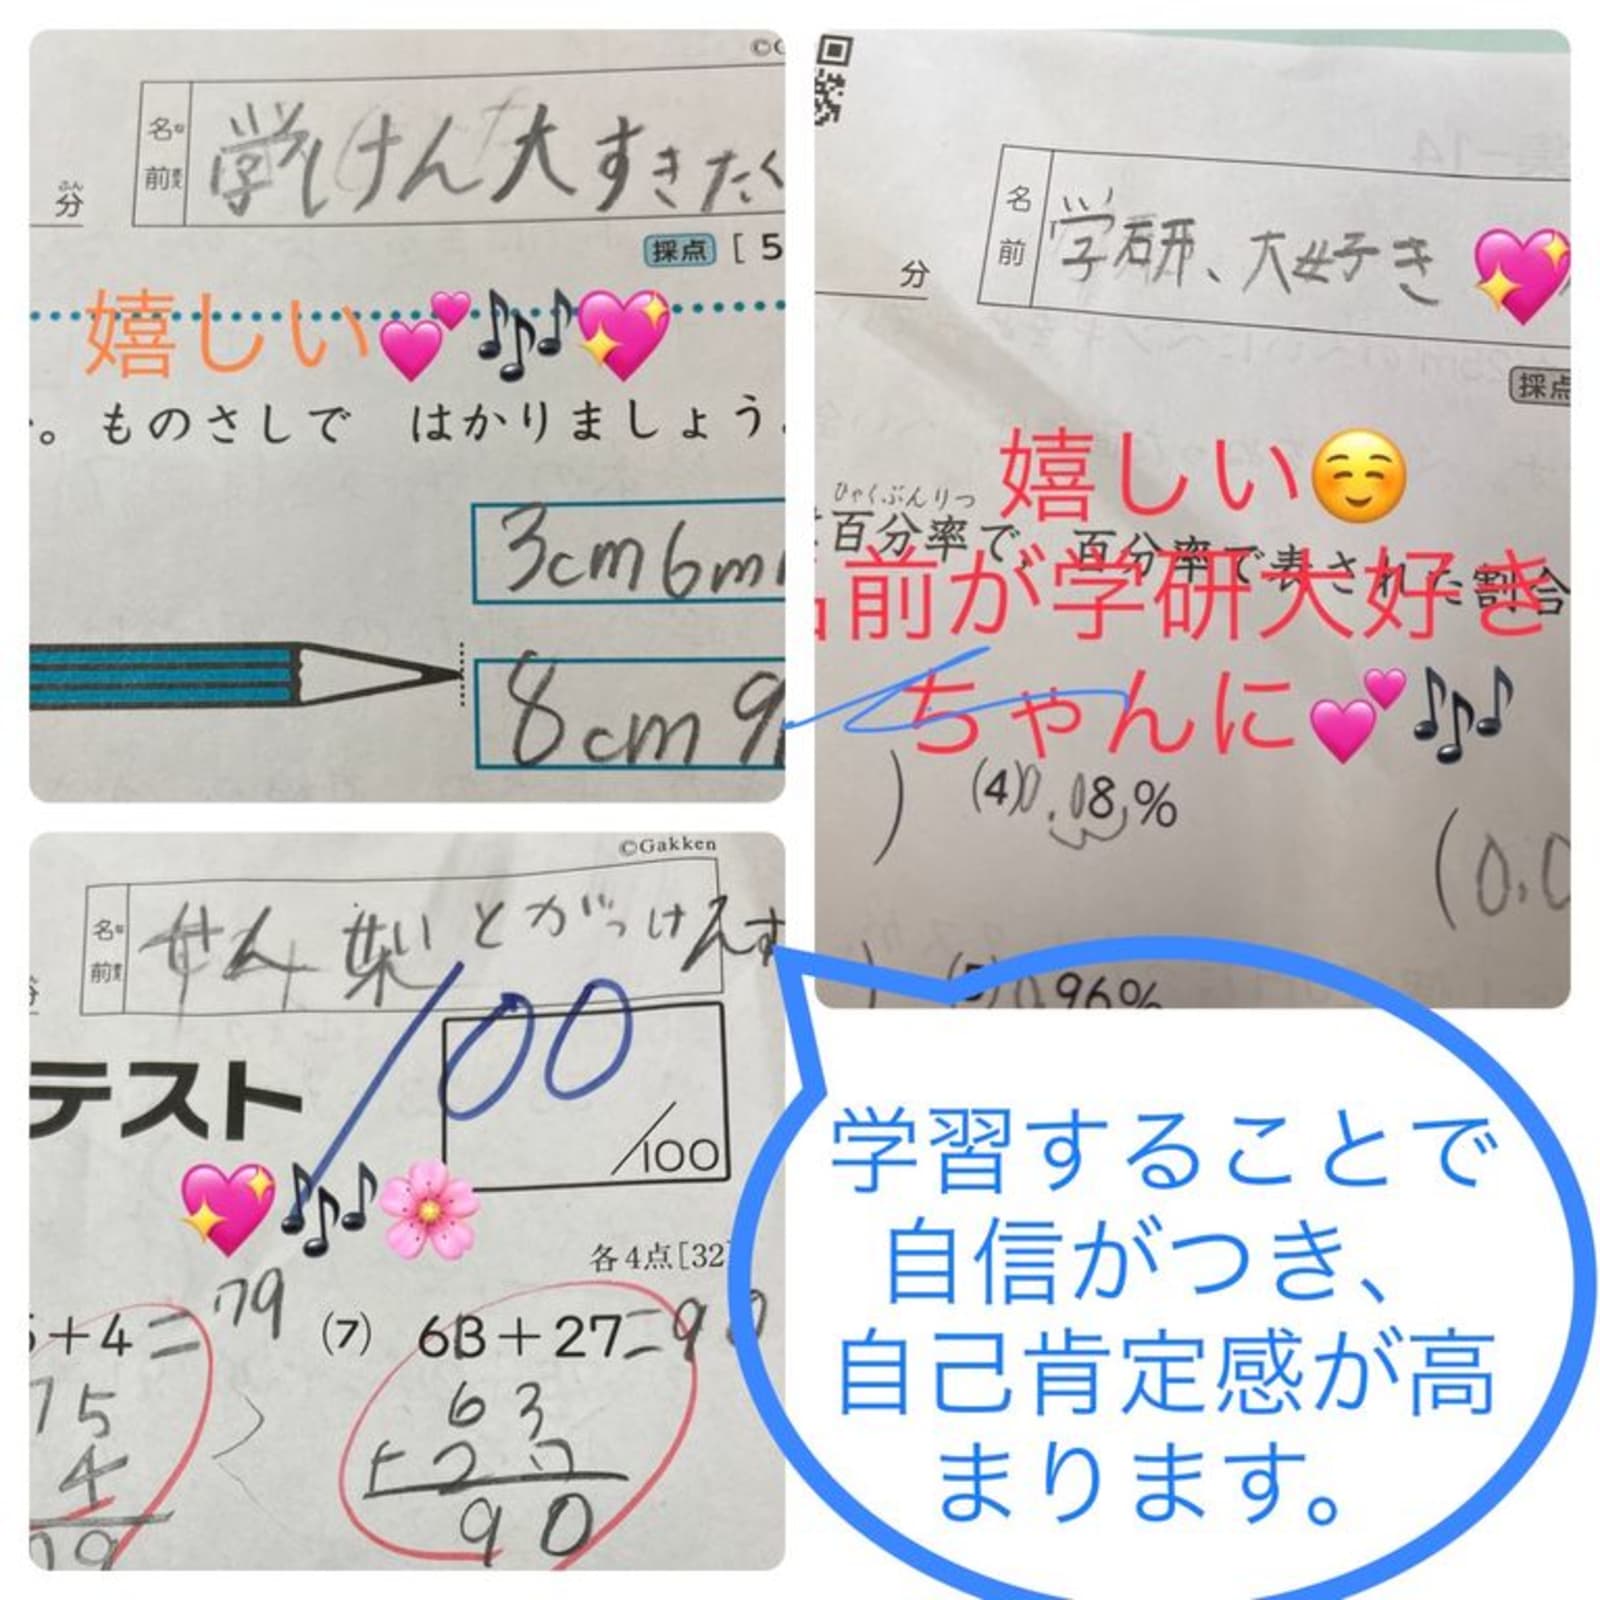 名前
学けん大すきたく
分
採点 [ 5
嬉しい
。ものさしで はかりましょう
3cm6m
8cm 9
名前
学研、大好き
分
採点
嬉しい
ひゃくぶんりつ
百分率で、百分率で表された割合
前が学研大好き
ちゃんに
(4) 0.08%
(0.0
(5) 0.96%
©Gakken
名前
せん
とがっけんす
100
テスト
/100
各4点[32
+4=79
(7) 63+27=90
75
4
79
63
+27
90
学習することで
自信がつき、
自己肯定感が高
まります。